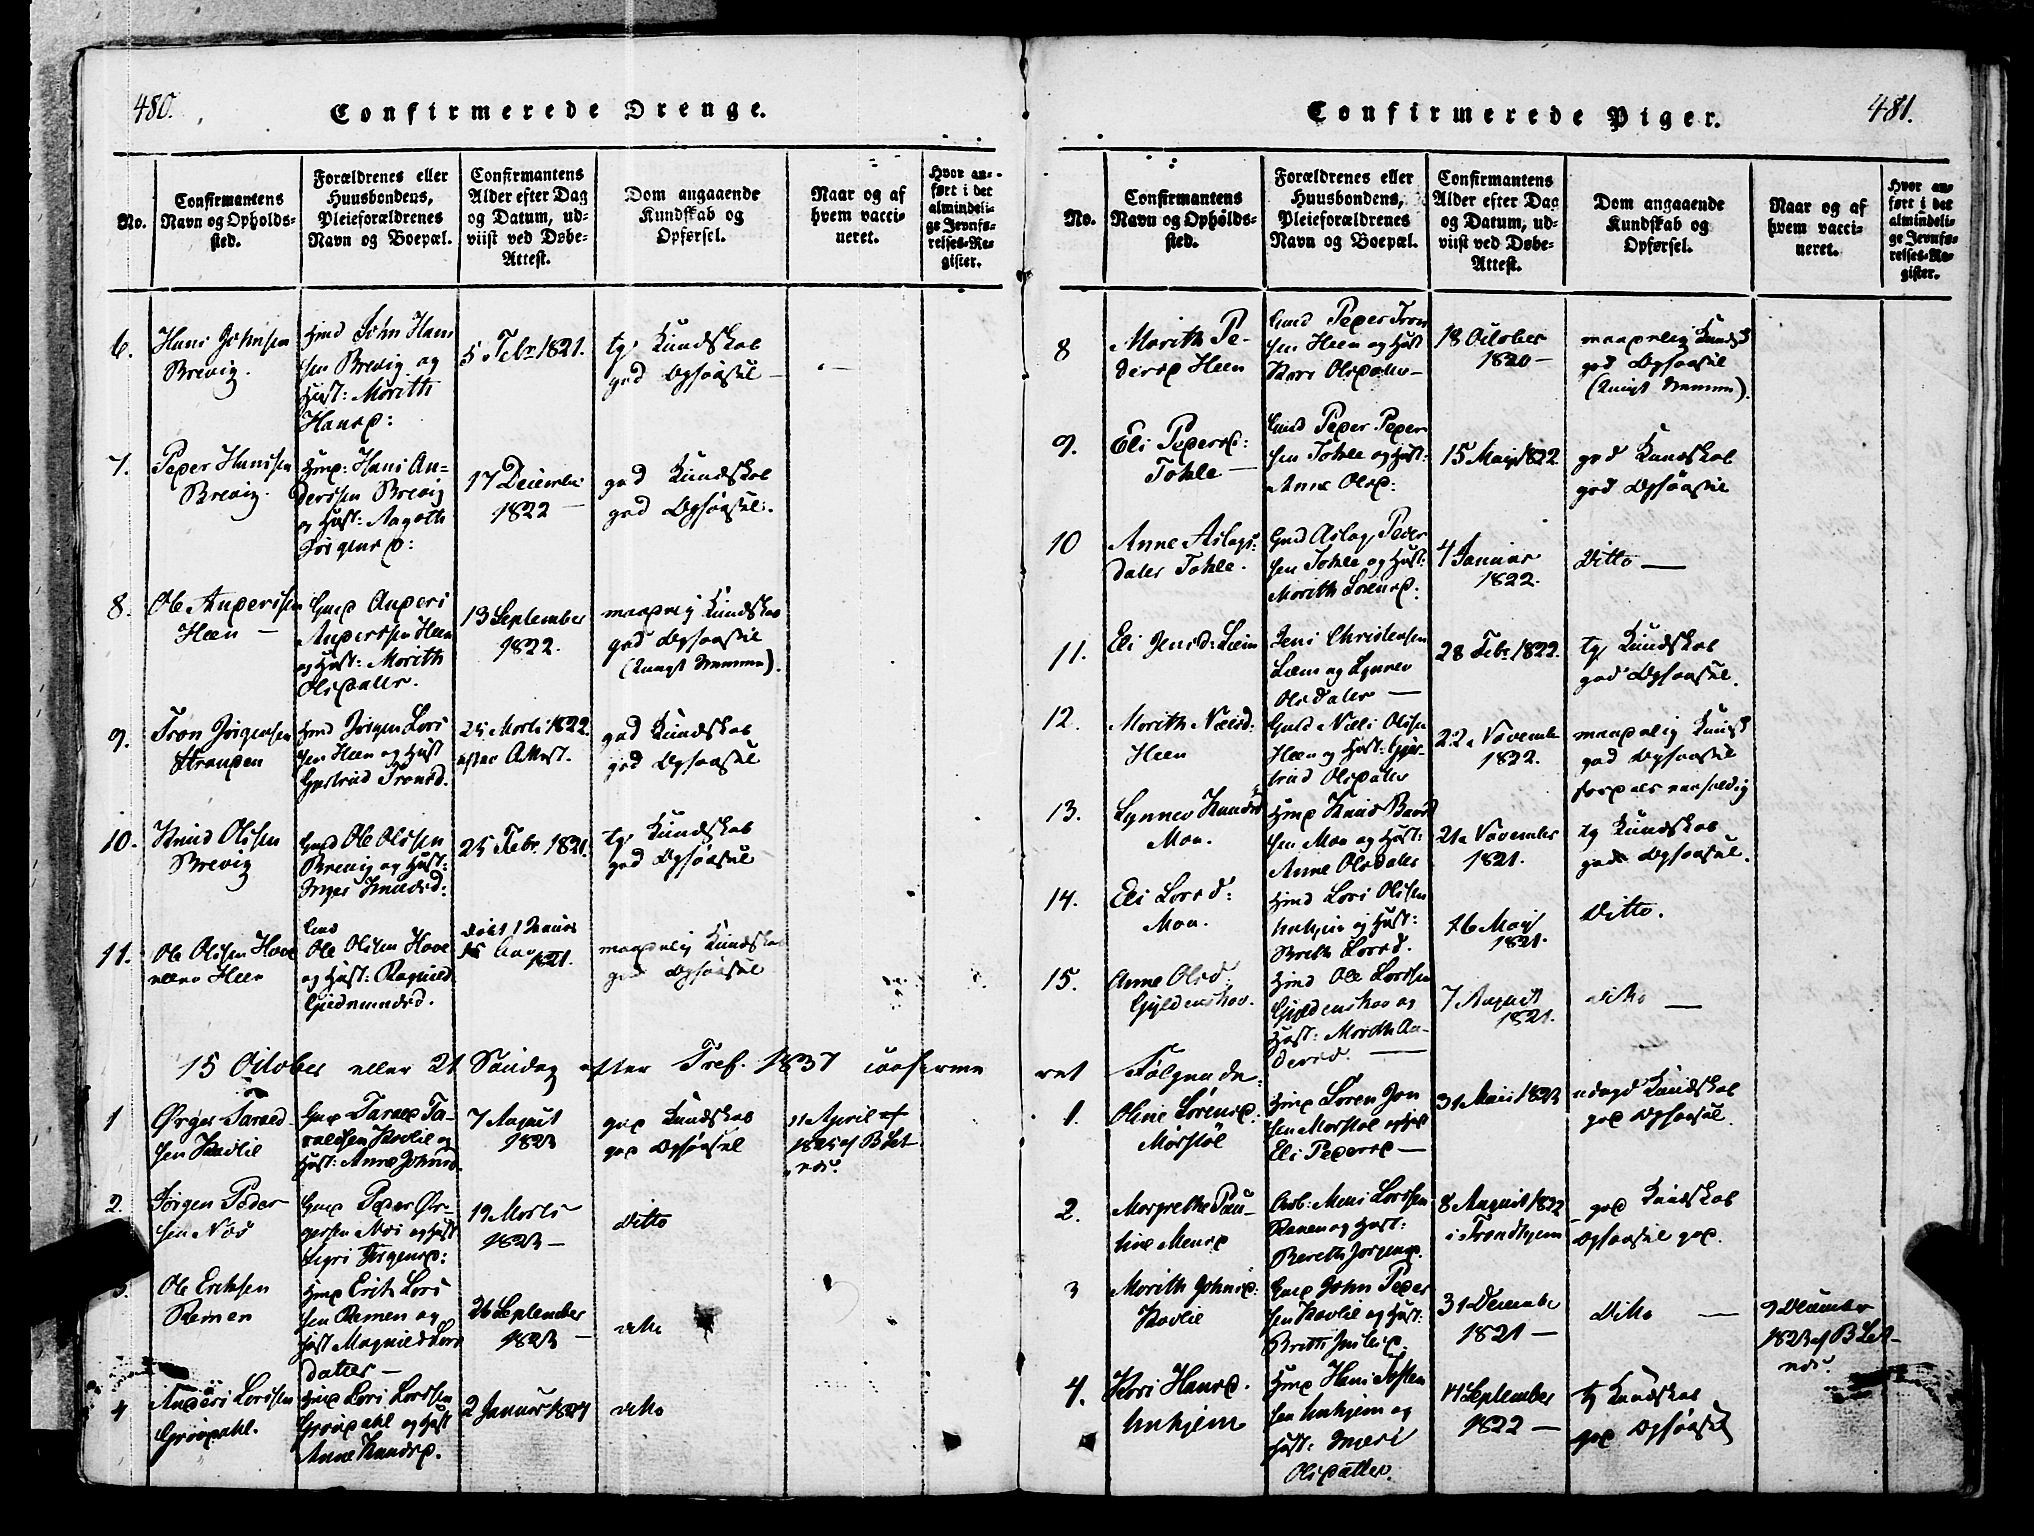 480.
Confirmerede Drenge.
No.
Confirmantens
Navn og Opholds-
sted.
Forældrenes eller
Huusbondens,
Pleieforældrenes
Navn og Boepæl.
Confirmantens
Alder efter Dag
og Datum, ud-
viist ved Døbe-
Attest.
Dom angaaende
Kundskab og
Opførsel.
Naar og af
hvem vacci-
neret.
Hvor an-
ført i det
almindeli-
ge Jevnfø-
relses-Re-
gister.
6.
Hans Johnsen
Brevig.
John Hans
sen Brevig og
Hust: Morith
Hansd:
5 Febr 1821.
tg Kundskab
god Opførsel
7.
Peder Hanssen
Brevig.
Hmd: Hans An-
derssen Brevig
og Hust: Aagoth
Jørgensd:
17 December
1822
god Kundskab
god Opførsel.
8.
Ole Anderssen
Heen
Gmd Anders
Anderssen Heen
og Hust: Morith
Olsdatter.
13 September
1822.
maadelig Kundskab
god Opførsel
9.
Tron Jørgensen
Stranden
Hmd Jørgen Lars
sen Heen og Hust
Gjertrud Tronsd.
25 Marts 1822.
efter Attest.
god Kundskab
god Opførsel
10.
Knud Olssen
Brevig
Gmd Ole Olssen
Brevig og Hust:
Inger Knudsd:
25 Febr. 1821.
tg Kundskab
god Opførsel
11.
Ole Olssen Hove
Heen
Gmd
Ole Olssen Hove
og Hust: Ragnild
Gudmundsd.
1821.
maadelig Kundskab
god Opførsel
15 October eller 21 Søndag efter Tref. 1837 confirme
1
Ørger Tarald-
sen Kavlie
Gmd Tarald Ta-
raldsen Kavlie og
Hust: Anne Johnsd.
7 August
1823
god Kundskab
god Opførsel
11 April
1825 af B Let
2.
Jørgen Peder
sen Nøs
Gmd Peder Ør-
gersen og Hust
Sigri Jørgensd:
19 Marts
1823
Ditto
3.
Ole Eriksen
Remen
Hmd Erik Lars
sen Remen og
Hust Magnild Lars
datter
26 September
1823
ditto
4
Anders Larssen
Grøvdahl.
Hmd Lars Larssen
Grøvdahl og Hust
Anne Knudsd.
2 Januar 1824
ditto
481.
Confirmerede Piger.
No.
Confirmantens
Navn og Opholds-
sted.
Forældrenes eller
Huusbondens,
Pleieforældrenes
Navn og Boepæl.
Confirmantens
Alder efter Dag
og Datum, ud-
viist ved Døbe-
Attest.
Dom angaaende
Kundskab og
Opførsel.
Naar og af
hvem vacci-
neret.
Hvor an-
ført i det
almindeli-
ge Jevnfø-
relses-Re-
gister.
8
Morith Pe-
dersd Heen
Gmd Peder Tron
sen Heen og Hust
Kari Olsdatter
18 October
1820
maadelig Kundsk
god Opførsel
9.
Eli Pedersd:
Tokle
Gmd Peder Peder
sen Tokle og Hust:
Anne Olsd:
15 May 1822
god Kundskab
god Opførsel
10
Anne Aslags-
datter Tokle.
Gmd Aslag Peder
sen Tokle og Hust:
Morith Sørensd:
4 Januar
1822.
Ditto
11.
Eli Jensd: Liem
Jens Christensen
Liem og Synnev
Olsdatter
28 Febr 1822.
tg Kundskab
god Opførsel.
12.
Morith Nielsd:
Heen
Gmd Niels Olssen
Heen og Hust: Gjer-
trud Olsdatter
22 Novemb
1822.
maadelig Kundsk
god Opførsel
13.
Synnev Knudsd
Moa.
Hmd Knud Baard
sen Moa og Hust:
Anne Olsdatter
21 November
1821.
tg Kundskab
god Opførsel.
14.
Eli Larsd:
Moa.
Hmd Lars Olssen
Unhjem og Hust:
Brith Larsd.
16 May
1821.
Ditto.
15.
Anne Olsd
Gyldenskov.
Hmd Ole Larssen
Gyldenskov og
Hust: Morith An-
dersd.
7 August
1821.
ditto
ret Følgende
1.
Oline Sørensd:
Morstøl
Hmd Søren Jon
sen Morstøl og Hust
Eli Pedersd
31 Mai 1823
Kundskab
god Opførsel.
2.
Margrethe Pau-
line Mensd
Arb: Mens Larssen
Ranen og Hust:
Bereth Jørgensd.
8 August 1822
i Trondhjem
god Kundskab
Opførsel god.
3
Morith Johnsd:
Kavlie
Gmd John Peder
sen Kavlie og Hust:
31 December
1821
Ditto
9 December
1823 af B Let-
4.
Kari Hansd.
Unhjem
Hmd Hans Tosten
sen Unhjem og
Hust: Marit
Olsdatter.
14 September
1822
tg Kundskab
god Opførsel